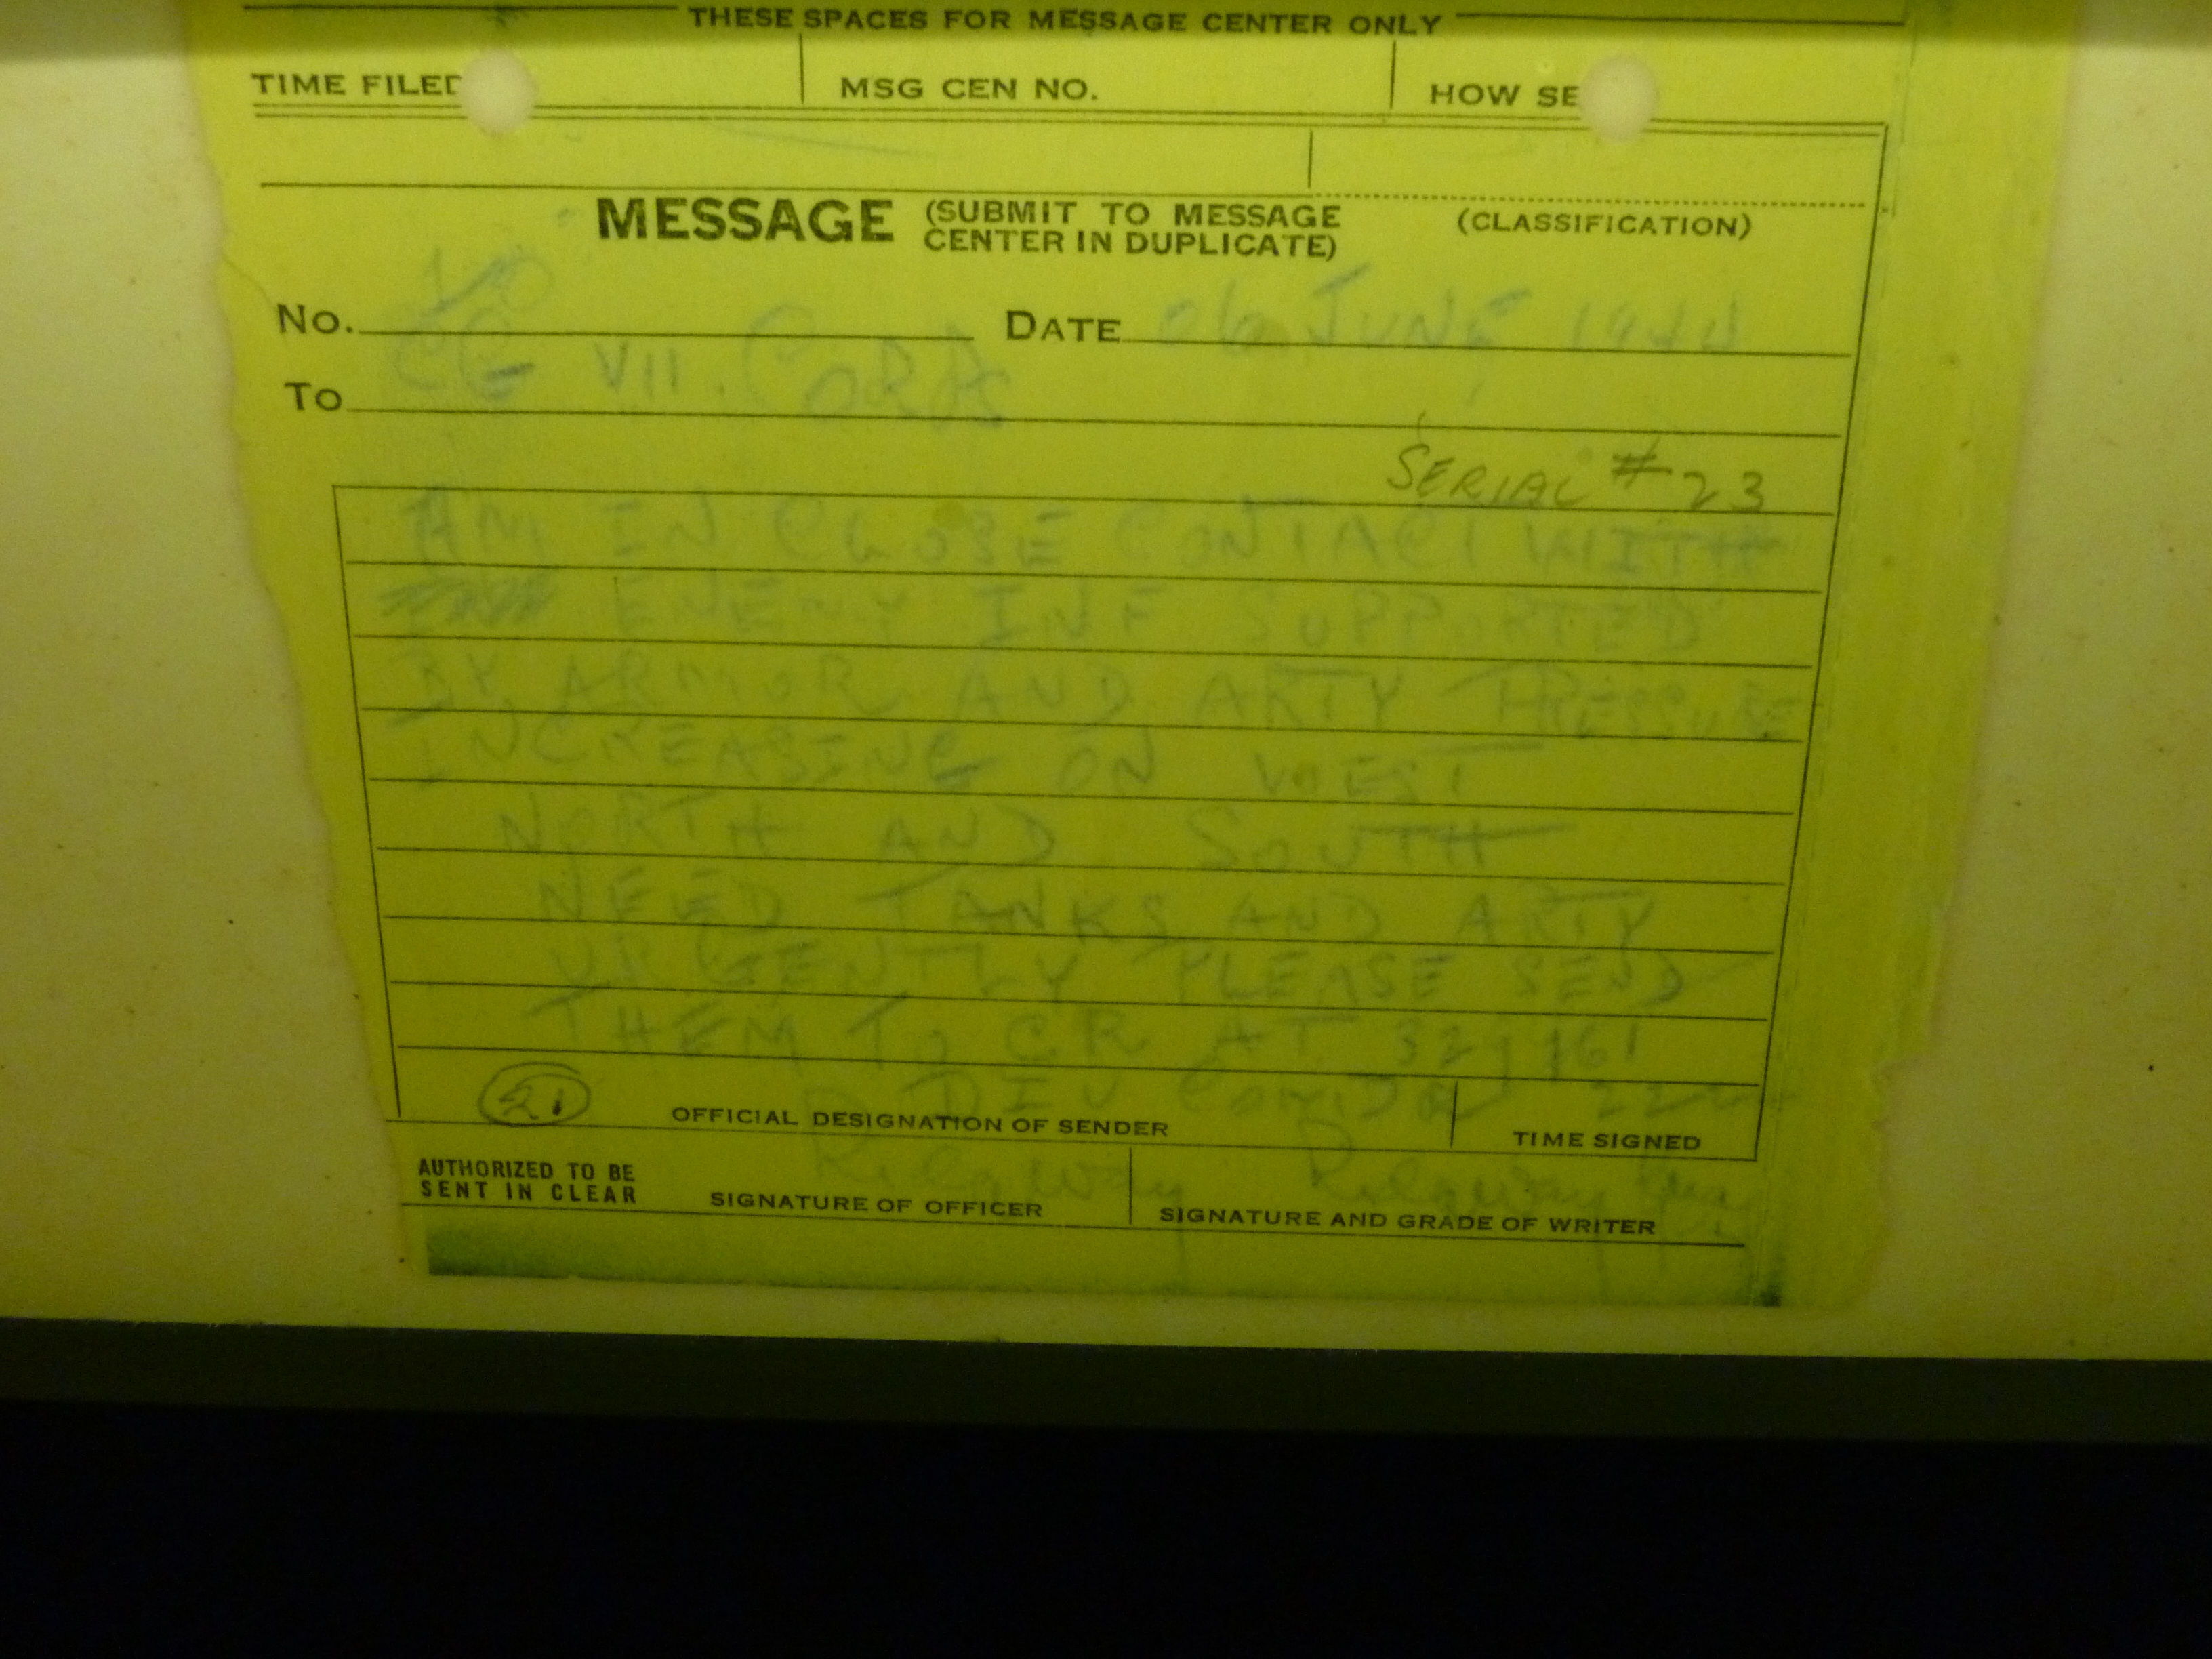 THESE SPACES FOR MESSAGE CENTER ONLY
TIME FILED MSG CEN NO. HOW SE
MESSAGE (SUBMIT TO MESSAGE CENTER IN DUPLICATE) (CLASSIFICATION)
No. DATE 06 JUNE 1944
To CG VII CORPS
SERIAL # 23
AM IN CLOSE CONTACT WITH
ENEMY INF SUPPORTED
BY ARMOR AND ARTY PRESSURE
INCREASING ON WEST
NORTH AND SOUTH
NEED TANKS AND ARTY
URGENTLY PLEASE SEND
THEM TO CR AT
DIV COMDR
21 OFFICIAL DESIGNATION OF SENDER TIME SIGNED
Ridgway Ridgway
AUTHORIZED TO BE SENT IN CLEAR SIGNATURE OF OFFICER SIGNATURE AND GRADE OF WRITER